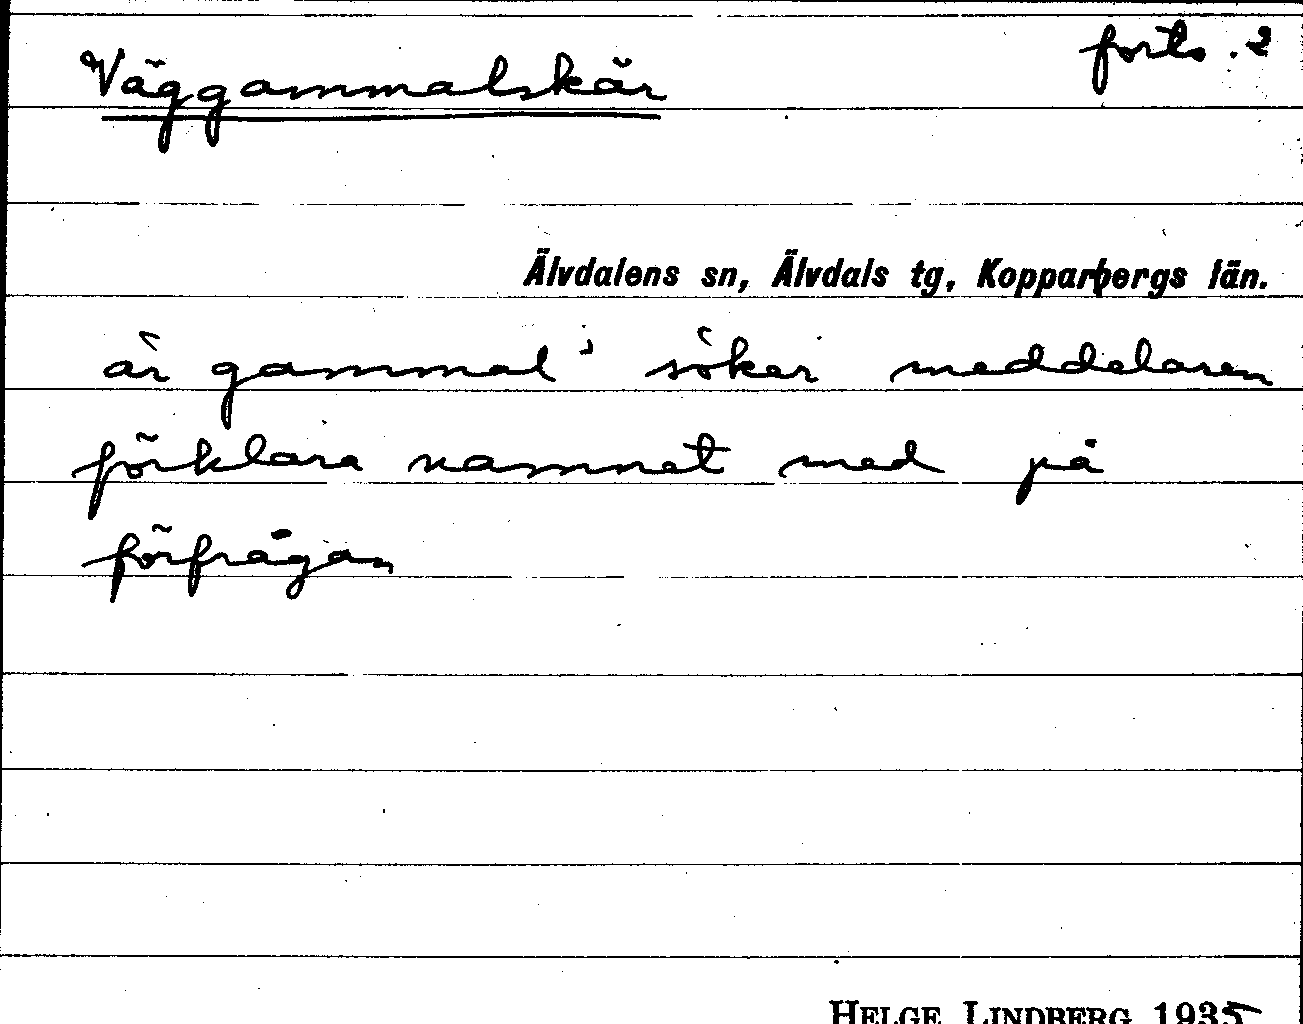 Väggammalskär
forts. 2
Älvdalens sn, Älvdals tg, Kopparbergs län.
är gammal' söker meddelaren
förklara namnet med på
förfrågan
HELGE LINDBERG 1935